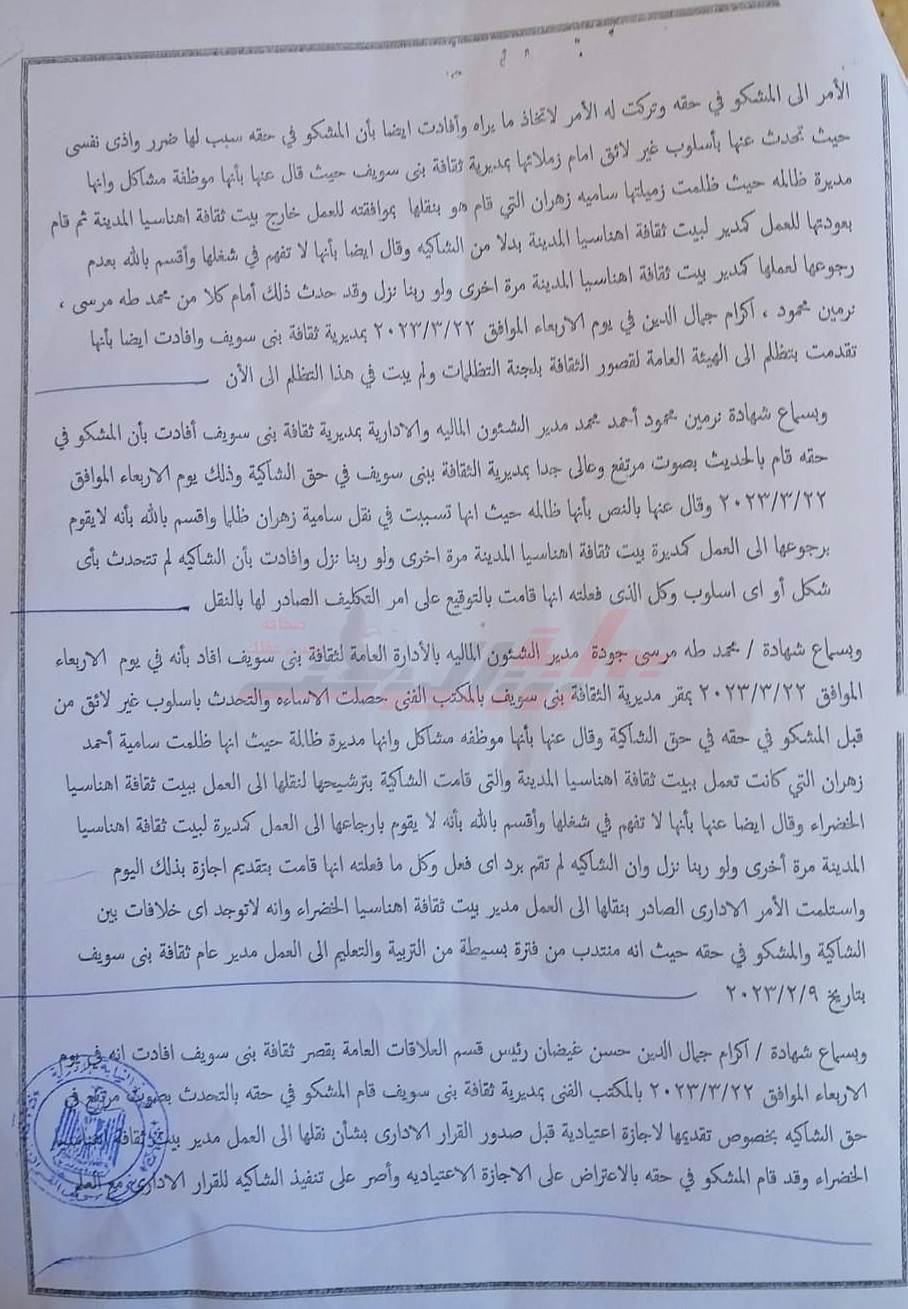 الأمر الى المشكو في حقه وتركت له الأمر لاتخاذ ما يراه وأفادت ايضا بأن المشكو في حقه سبب لها ضرر واذى نفسى
حيث تحدث عنها بأسلوب غير لائق امام زملائها بمديرية ثقافة بنى سويف حيث قال عنها بأنها موظفة مشاكل وانها
مديرة ظالمه حيث ظلمت زميلتها ساميه زهران التي قام هو بنقلها بموافقته للعمل خارج بيت ثقافة اهناسيا المدينة ثم قام
بعودتها للعمل كمدير لبيت ثقافة اهناسيا المدينة بدلا من الشاكيه وقال ايضا بأنها لا تفهم في شغلها وأقسم بالله بعدم
رجوعها لعملها كمدير بيت ثقافة اهناسيا المدينة مرة اخرى ولو ربنا نزل وقد حدث ذلك أمام كلا من محمد طه مرسى ،
نرمين محمود ، اكرام جمال الدين في يوم الاربعاء الموافق ٢٠٢٣/٣/٢٢ بمديرية ثقافة بنى سويف وافادت ايضا بأنها
تقدمت بتظلم الى الهيئة العامة لقصور الثقافة بلجنة التظلمات ولم يبت في هذا التظلم الى الأن
وبسماع شهادة نرمين محمود أحمد محمد مدير الشئون الماليه والادارية بمديرية ثقافة بنى سويف أفادت بأن المشكو في
حقه قام بالحديث بصوت مرتفع وعالى جدا بمديرية الثقافة ببنى سويف في حق الشاكية وذلك يوم الاربعاء الموافق
٢٠٢٣/٣/٢٢ وقال عنها بالنص بأنها ظالمه حيث انها تسببت في نقل سامية زهران ظلما واقسم بالله بأنه لايقوم
برجوعها الى العمل كمديرة بيت ثقافة اهناسيا المدينة مرة اخرى ولو ربنا نزل وافادت بأن الشاكيه لم تتحدث بأى
شكل أو اى اسلوب وكل الذى فعلته انها قامت بالتوقيع على امر التكليف الصادر لها بالنقل
وبسماع شهادة / محمد طه مرسى جودة مدير الشئون الماليه بالأدارة العامة لثقافة بنى سويف افاد بأنه في يوم الاربعاء
الموافق ٢٠٢٣/٣/٢٢ بمقر مديرية الثقافة بنى سويف بالمكتب الفنى حصلت الاساءه والتحدث باسلوب غير لائق من
قبل المشكو في حقه في حق الشاكية وقال عنها بأنها موظفه مشاكل وانها مديرة ظالمة حيث انها ظلمت سامية أحمد
زهران التي كانت تعمل ببيت ثقافة اهناسيا المدينة والتى قامت الشاكية بترشيحها لنقلها الى العمل ببيت ثقافة اهناسيا
الخضراء وقال ايضا عنها بأنها لا تفهم في شغلها وأقسم بالله بأنه لا يقوم بارجاعها الى العمل كمديرة لبيت ثقافة اهناسيا
المدينة مرة أخرى ولو ربنا نزل وان الشاكيه لم تقم برد اى فعل وكل ما فعلته انها قامت بتقديم اجازة بذلك اليوم
واستلمت الأمر الادارى الصادر بنقلها الى العمل مدير بيت ثقافة اهناسيا الخضراء وانه لاتوجد اى خلافات بين
الشاكية والمشكو في حقه حيث انه منتدب من فترة بسيطة من التربية والتعليم الى العمل مدير عام ثقافة بنى سويف
بتاريخ ٢٠٢٣/٢/٩
وبسماع شهادة / اكرام جمال الدين حسن غيضان رئيس قسم العلاقات العامة بقصر ثقافة بنى سويف افادت انه في يوم
الاربعاء الموافق ٢٠٢٣/٣/٢٢ بالمكتب الفنى بمديرية ثقافة بنى سويف قام المشكو في حقه بالتحدث بصوت مرتفع في
حق الشاكيه بخصوص تقديمها لاجازة اعتيادية قبل صدور القرار الادارى بشأن نقلها الى العمل مدير بيت ثقافة اهناسيا
الخضراء وقد قام المشكو في حقه بالاعتراض على الاجازة الاعتياديه وأصر على تنفيذ الشاكيه للقرار الادارى مع العلم